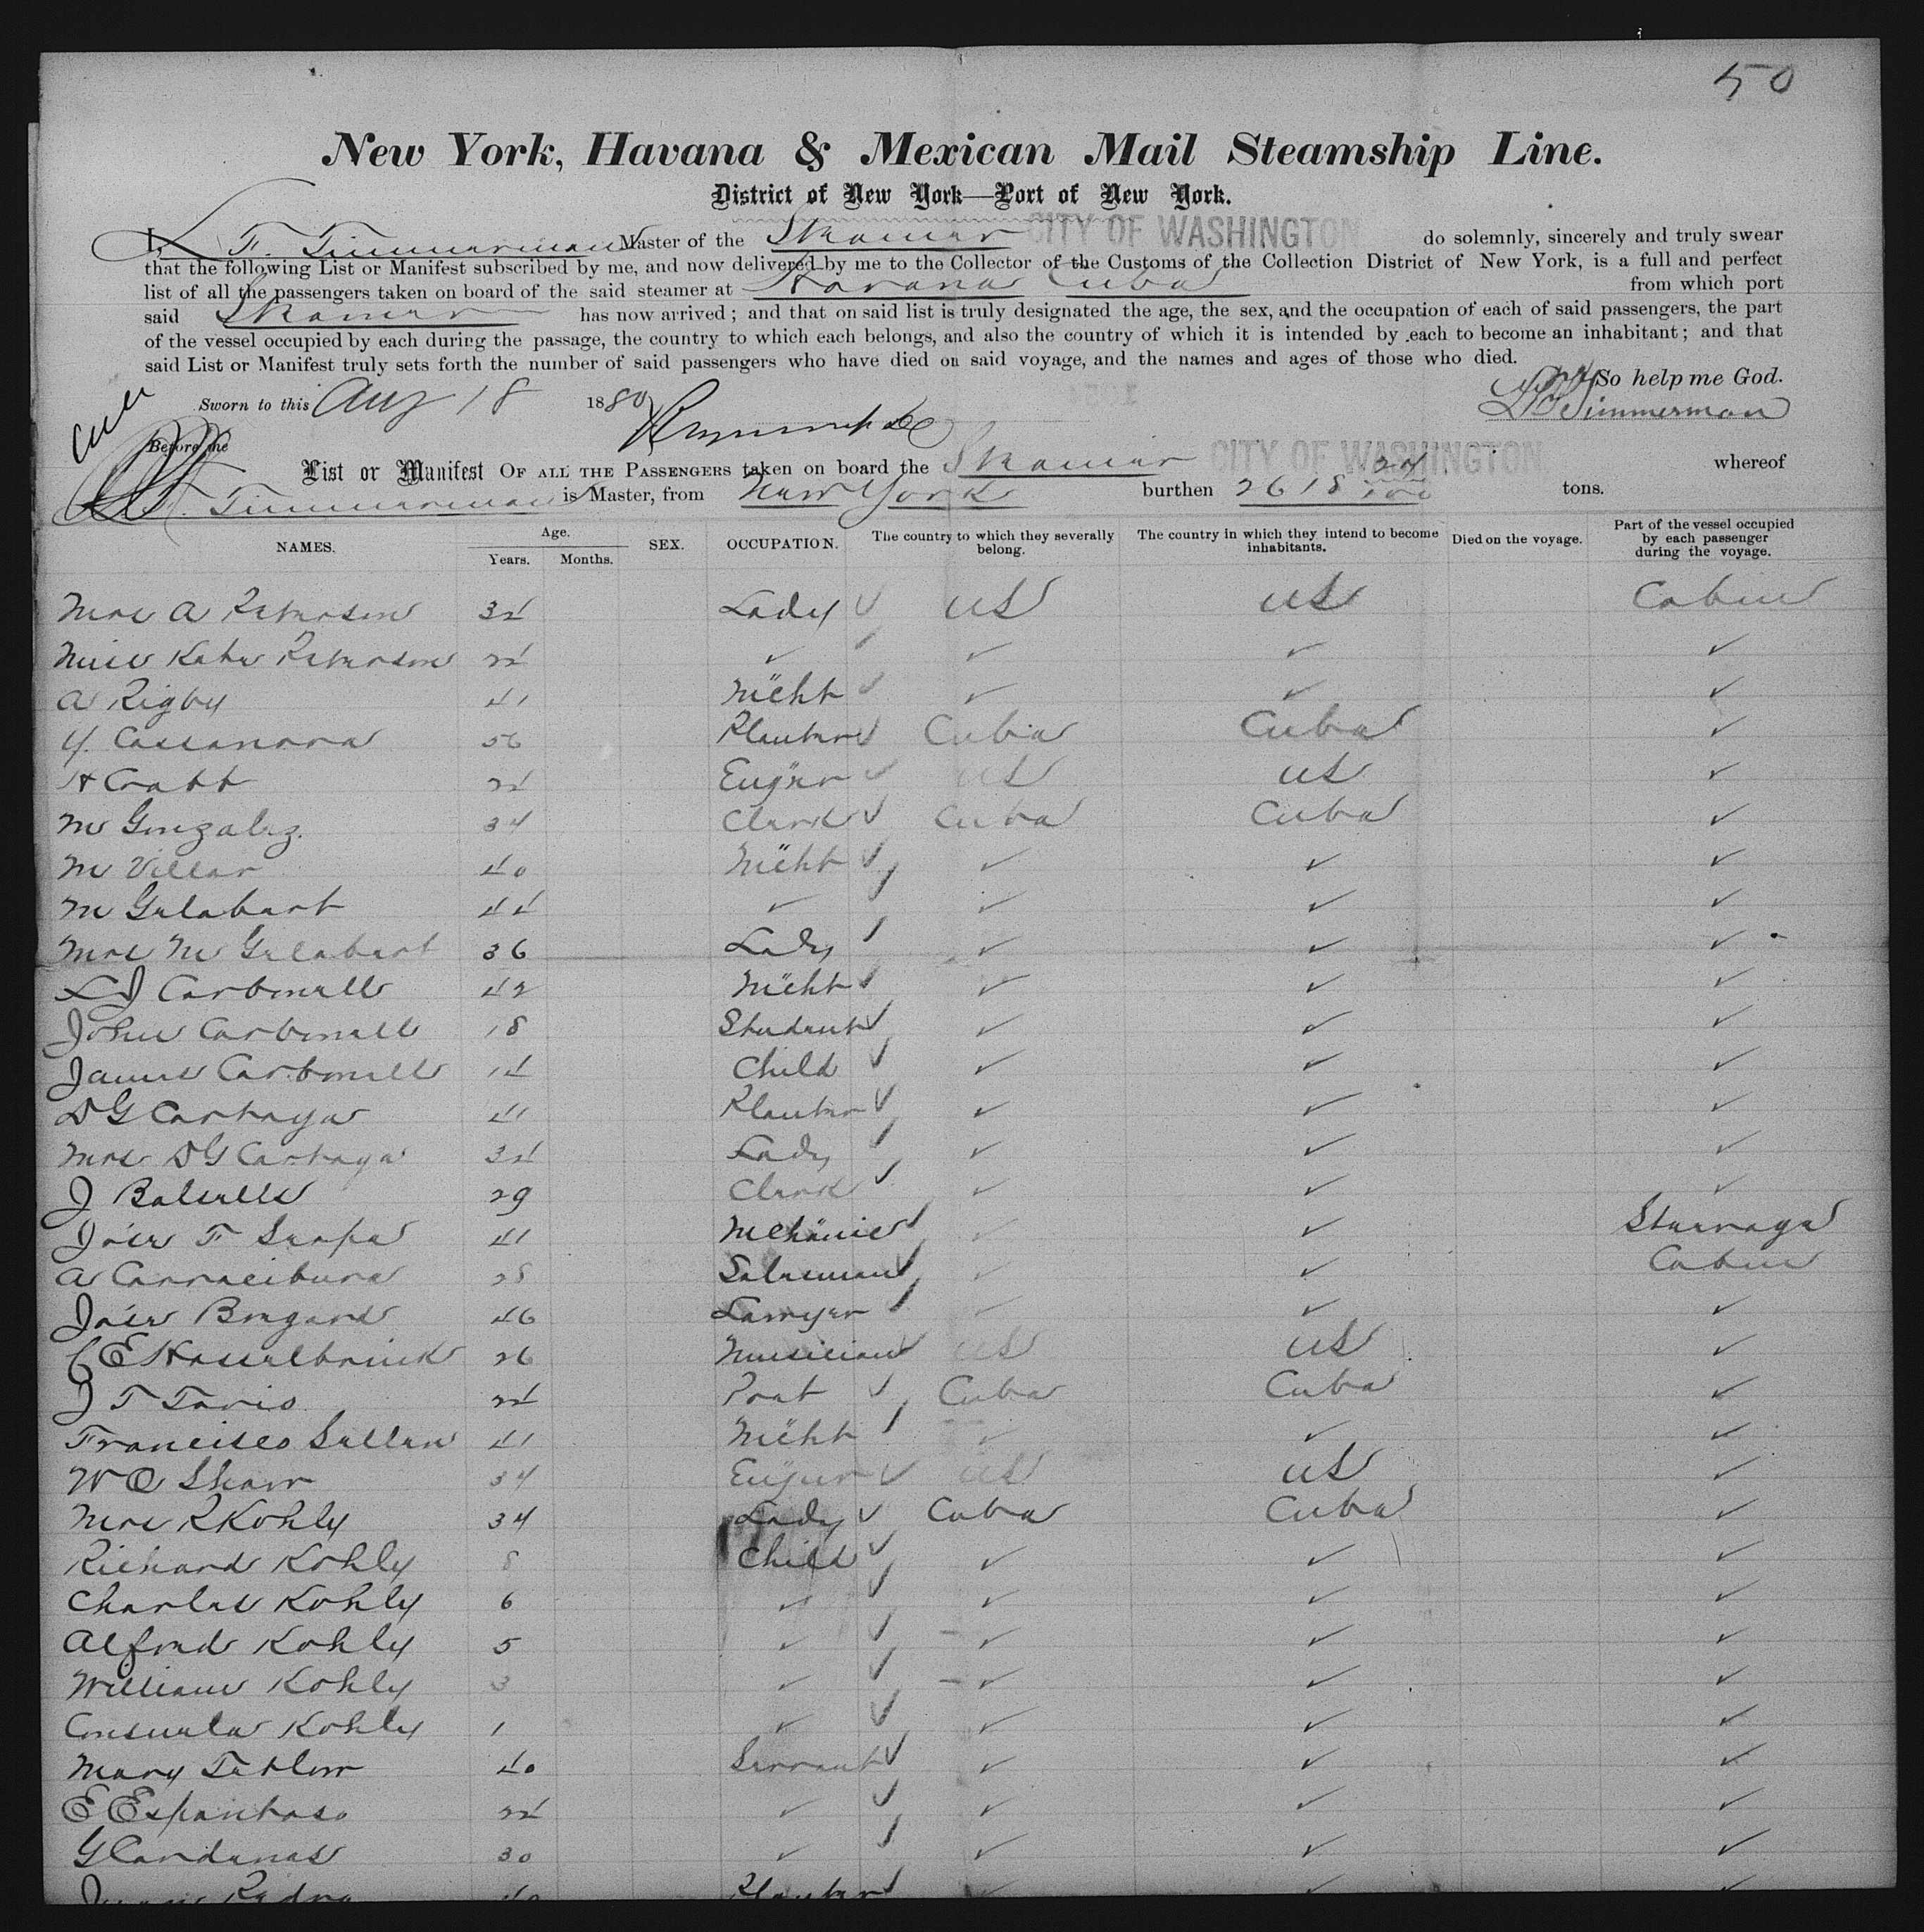 50
New York, Havana & Mexican Mail Steamship Line.
District of New York—Port of New York.
I, F. Timmerman Master of the Steamer CITY OF WASHINGTON do solemnly, sincerely and truly swear
that the following List or Manifest subscribed by me, and now delivered by me to the Collector of the Customs of the Collection District of New York, is a full and perfect
list of all the passengers taken on board of the said steamer at Havana Cuba from which port
said Steamer has now arrived; and that on said list is truly designated the age, the sex, and the occupation of each of said passengers, the part
of the vessel occupied by each during the passage, the country to which each belongs, and also the country of which it is intended by each to become an inhabitant; and that
said List or Manifest truly sets forth the number of said passengers who have died on said voyage, and the names and ages of those who died.
So help me God.
Sworn to this Aug 18 1880 Timmerman
Before me
List or Manifest OF ALL THE PASSENGERS taken on board the Steamer CITY OF WASHINGTON whereof
F. Timmerman is Master, from New York burthen 2618 24/100 tons.
NAMES. Age. Years. Months. SEX. OCCUPATION. The country to which they severally belong. The country in which they intend to become inhabitants. Died on the voyage. Part of the vessel occupied by each passenger during the voyage.
Mrs A Peterson Lady US US Cabin
Miss Kate Peterson ✓ ✓ ✓ ✓
A Rigby 41 Mcht ✓ ✓ ✓
Y. Cassanova 56 Planter Cuba Cuba ✓
H Crabb Engner US US ✓
M Gonzalez. 34 Clerk Cuba Cuba ✓
M Villar 40 Mcht ✓ ✓ ✓
M Gelabert 44 ✓ ✓ ✓ ✓
Mrs M Gelabert 36 Lady ✓ ✓ ✓
L J Carbonell 42 Mcht ✓ ✓ ✓
John Carbonell 18 Student ✓ ✓ ✓
James Carbonell 14 Child ✓ ✓ ✓
D G Cartaya 41 Planter ✓ ✓ ✓
Mrs D G Cartaya Lady ✓ ✓ ✓
J Balsells 29 Clerk ✓ ✓ ✓
Jose F Serpa 41 Mchanic ✓ ✓ Steerage
A Carracibura 28 Salesman ✓ ✓ Cabin
Jose Bongard 46 Lawyer ✓ ✓ ✓
C E Hasselbrink 26 Musician US US ✓
J T Tovio Cuba Cuba ✓
Francisco Sellen 41 Mcht ✓ ✓ ✓
W O Shaw 34 Engner US US ✓
Mrs R Kohly 34 Lady Cuba Cuba ✓
Richard Kohly 8 Child ✓ ✓ ✓
Charles Kohly 6 ✓ ✓ ✓ ✓
Alfred Kohly 5 ✓ ✓ ✓ ✓
William Kohly 3 ✓ ✓ ✓ ✓
Consuela Kohly 1 ✓ ✓ ✓ ✓
Mary Tatlow 40 Servant ✓ ✓ ✓
E Espantoso ✓ ✓ ✓ ✓
G Cardenas 30 ✓ ✓ ✓ ✓
Juan Pedro 40 Planter ✓ ✓ ✓